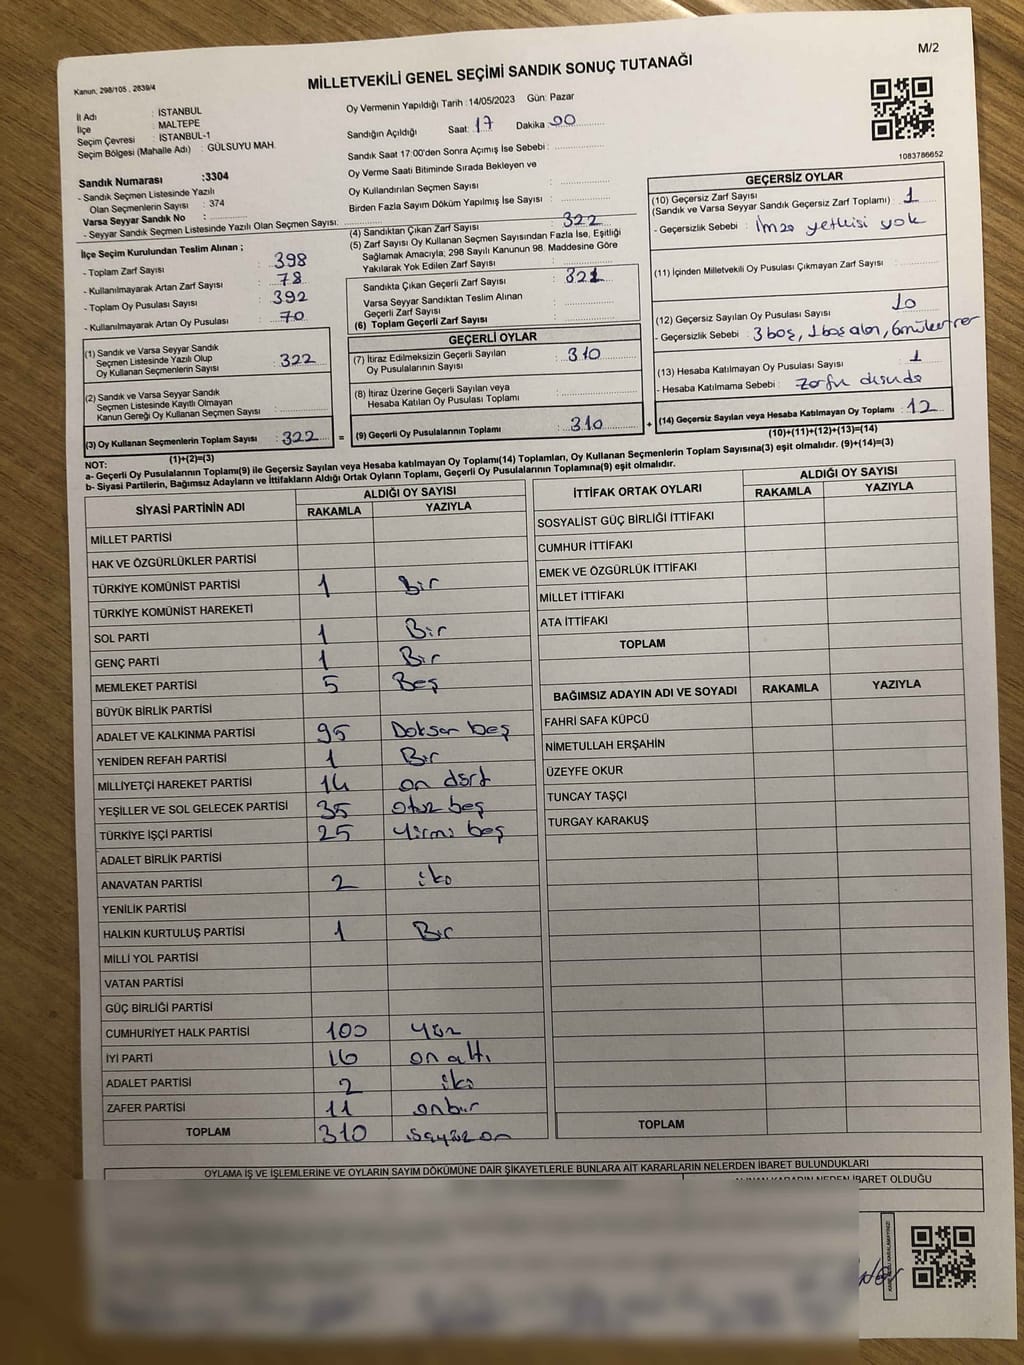 M/2
Kanun, 298/105 , 2839/4
MİLLETVEKİLİ GENEL SEÇİMİ SANDIK SONUÇ TUTANAĞI
İl Adı : İSTANBUL
İlçe : MALTEPE
Seçim Çevresi : İSTANBUL-1
Seçim Bölgesi (Mahalle Adı) : GÜLSUYU MAH.
Sandık Numarası :3304
- Sandık Seçmen Listesinde Yazılı
Olan Seçmenlerin Sayısı : 374
Varsa Seyyar Sandık No :
- Seyyar Sandık Seçmen Listesinde Yazılı Olan Seçmen Sayısı:
İlçe Seçim Kurulundan Teslim Alınan ;
- Toplam Zarf Sayısı : 398
- Kullanılmayarak Artan Zarf Sayısı : 78
- Toplam Oy Pusulası Sayısı : 392
- Kullanılmayarak Artan Oy Pusulası : 70
(1) Sandık ve Varsa Seyyar Sandık
Seçmen Listesinde Yazılı Olup
Oy Kullanan Seçmenlerin Sayısı : 322
(2) Sandık ve Varsa Seyyar Sandık
Seçmen Listesinde Kayıtlı Olmayan
Kanun Gereği Oy Kullanan Seçmen Sayısı :
(3) Oy Kullanan Seçmenlerin Toplam Sayısı : 322
(1)+(2)=(3)
Oy Vermenin Yapıldığı Tarih : 14/05/2023 Gün: Pazar
Sandığın Açıldığı Saat: 17 Dakika: 00
Sandık Saat 17:00'den Sonra Açımış İse Sebebi :
Oy Verme Saati Bitiminde Sırada Bekleyen ve
Oy Kullandırılan Seçmen Sayısı :
Birden Fazla Sayım Döküm Yapılmış İse Sayısı :
(4) Sandıktan Çıkan Zarf Sayısı : 322
(5) Zarf Sayısı Oy Kullanan Seçmen Sayısından Fazla İse, Eşitliği
Sağlamak Amacıyla; 298 Sayılı Kanunun 98. Maddesine Göre
Yakılarak Yok Edilen Zarf Sayısı :
Sandıkta Çıkan Geçerli Zarf Sayısı : 321
Varsa Seyyar Sandıktan Teslim Alınan
Geçerli Zarf Sayısı :
(6) Toplam Geçerli Zarf Sayısı :
GEÇERLİ OYLAR
(7) İtiraz Edilmeksizin Geçerli Sayılan
Oy Pusulalarının Sayısı : 310
(8) İtiraz Üzerine Geçerli Sayılan veya
Hesaba Katılan Oy Pusulası Toplamı :
= (9) Geçerli Oy Pusulalarının Toplamı : 310 +
1083786652
GEÇERSİZ OYLAR
(10) Geçersiz Zarf Sayısı : 1
(Sandık ve Varsa Seyyar Sandık Geçersiz Zarf Toplamı)
- Geçersizlik Sebebi : İmza yetkisi yok
(11) İçinden Milletvekili Oy Pusulası Çıkmayan Zarf Sayısı :
(12) Geçersiz Sayılan Oy Pusulası Sayısı : 10
- Geçersizlik Sebebi : 3 boş, 1 boş alan, 6 mükerrer
(13) Hesaba Katılmayan Oy Pusulası Sayısı : 1
- Hesaba Katılmama Sebebi : zarfın dışında
(14) Geçersiz Sayılan veya Hesaba Katılmayan Oy Toplamı : 12
(10)+(11)+(12)+(13)=(14)
NOT:
a- Geçerli Oy Pusulalarının Toplamı(9) ile Geçersiz Sayılan veya Hesaba katılmayan Oy Toplamı(14) Toplamları, Oy Kullanan Seçmenlerin Toplam Sayısına(3) eşit olmalıdır. (9)+(14)=(3)
b- Siyasi Partilerin, Bağımsız Adayların ve İttifakların Aldığı Ortak Oyların Toplamı, Geçerli Oy Pusulalarının Toplamına(9) eşit olmalıdır.
SİYASİ PARTİNİN ADI ALDIĞI OY SAYISI
RAKAMLA YAZIYLA
MİLLET PARTİSİ
HAK VE ÖZGÜRLÜKLER PARTİSİ
TÜRKİYE KOMÜNİST PARTİSİ 1 Bir
TÜRKİYE KOMÜNİST HAREKETİ
SOL PARTİ 1 Bir
GENÇ PARTİ 1 Bir
MEMLEKET PARTİSİ 5 Beş
BÜYÜK BİRLİK PARTİSİ
ADALET VE KALKINMA PARTİSİ 95 Doksan beş
YENİDEN REFAH PARTİSİ 1 Bir
MİLLİYETÇİ HAREKET PARTİSİ 14 on dört
YEŞİLLER VE SOL GELECEK PARTİSİ 35 otuz beş
TÜRKİYE İŞÇİ PARTİSİ 25 Yirmi beş
ADALET BİRLİK PARTİSİ
ANAVATAN PARTİSİ 2 iki
YENİLİK PARTİSİ
HALKIN KURTULUŞ PARTİSİ 1 Bir
MİLLİ YOL PARTİSİ
VATAN PARTİSİ
GÜÇ BİRLİĞİ PARTİSİ
CUMHURİYET HALK PARTİSİ 100 Yüz
İYİ PARTİ 16 on altı
ADALET PARTİSİ 2 iki
ZAFER PARTİSİ 11 onbir
TOPLAM 310
İTTİFAK ORTAK OYLARI ALDIĞI OY SAYISI
RAKAMLA YAZIYLA
SOSYALİST GÜÇ BİRLİĞİ İTTİFAKI
CUMHUR İTTİFAKI
EMEK VE ÖZGÜRLÜK İTTİFAKI
MİLLET İTTİFAKI
ATA İTTİFAKI
TOPLAM
BAĞIMSIZ ADAYIN ADI VE SOYADI RAKAMLA YAZIYLA
FAHRİ SAFA KÜPCÜ
NİMETULLAH ERŞAHİN
ÜZEYFE OKUR
TUNCAY TAŞÇI
TURGAY KARAKUŞ
TOPLAM
OYLAMA İŞ VE İŞLEMLERİNE VE OYLARIN SAYIM DÖKÜMÜNE DAİR ŞİKAYETLERLE BUNLARA AİT KARARLARIN NELERDEN İBARET BULUNDUKLARI
ALINAN KARARIN NEDEN İBARET OLDUĞU